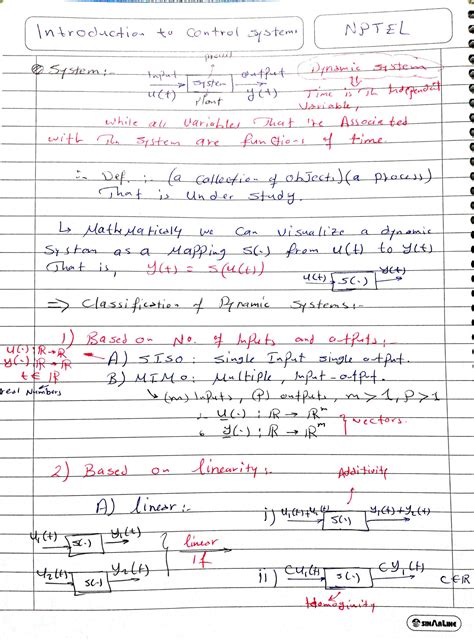 Introduction to Control Systems
NPTEL
process
System:-
Input
u(t)
System
Plant
output
y(t)
Dynamic System
Time is The Independent
Variable,
while all Variables That 're Associated
with The System are functions of time.
∴ Def. :- (a collection of objects)(a process)
That is under study.
↳ Mathematically we can visualize a dynamic
System as a Mapping S(.) from u(t) to y(t)
That is, y(t) = S(u(t))
u(t) S(.) y(t)
⇒ Classification of Dynamic Systems:-
1) Based on No. of Inputs and outputs:-
u(.) : ℝ → ℝ
y(.) : ℝ → ℝ
t ∈ ℝ
real Numbers
A) SISO : Single Input single output.
B) MIMO : Multiple, Input-output.
↳ (m) Inputs, (P) outputs, m > 1, P > 1
u(.) : ℝ → ℝᵐ
y(.) : ℝ → ℝᵐ
vectors.
2) Based on linearity:-
Additivity
A) linear:-
u₁(t) S(.) y₁(t)
u₂(t) S(.) y₂(t)
linear
if
i) u₁(t)+u₂(t) S(.) y₁(t)+y₂(t)
ii) Cu₁(t) S(.) Cy₁(t) C∈ℝ
Homoginuity
SINARLINE